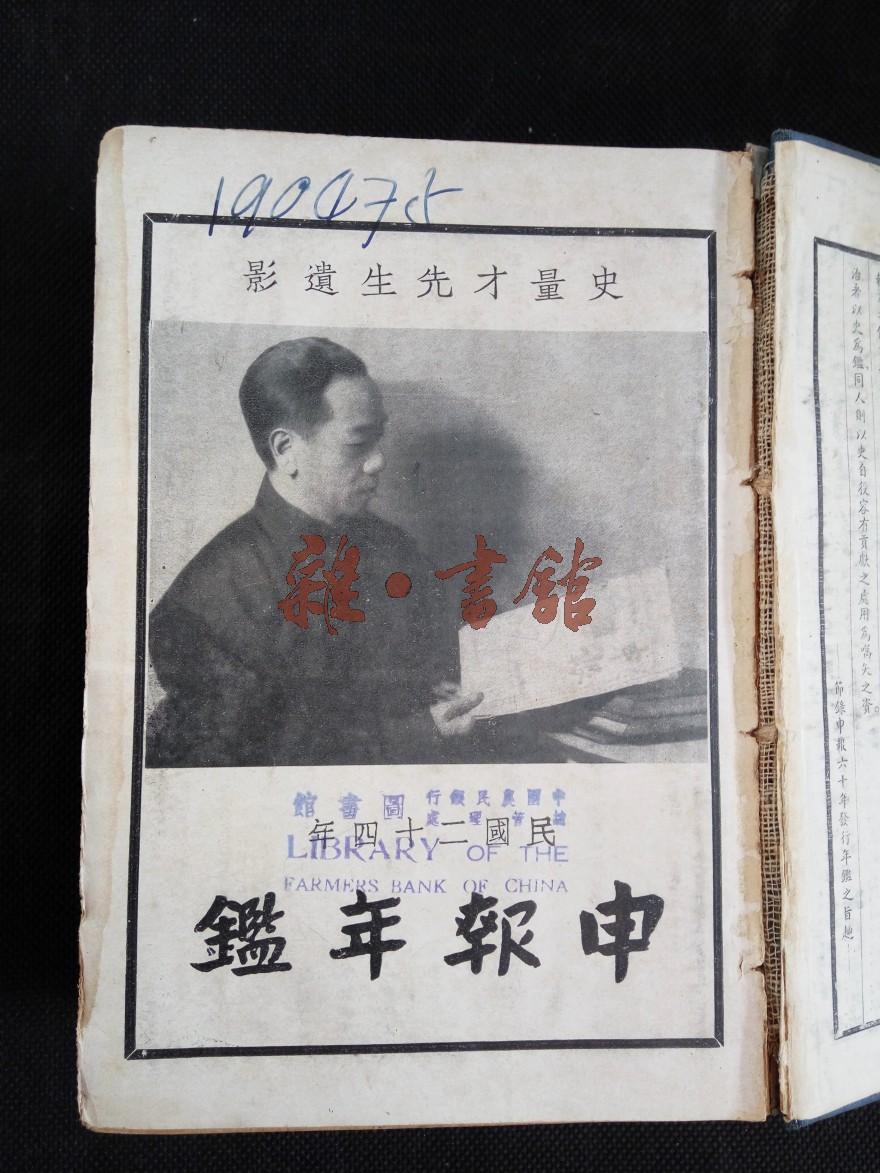 190475
史量才先生遺影
雜·書館
中國農民銀行
總管理處
圖書館
民國二十四年
LIBRARY OF THE
FARMERS BANK OF CHINA
申報年鑑
治者以史為鑑同人則以史自役容有貢獻之處用為嚆矢之資。
節錄申報六十年發行年鑑之旨趣